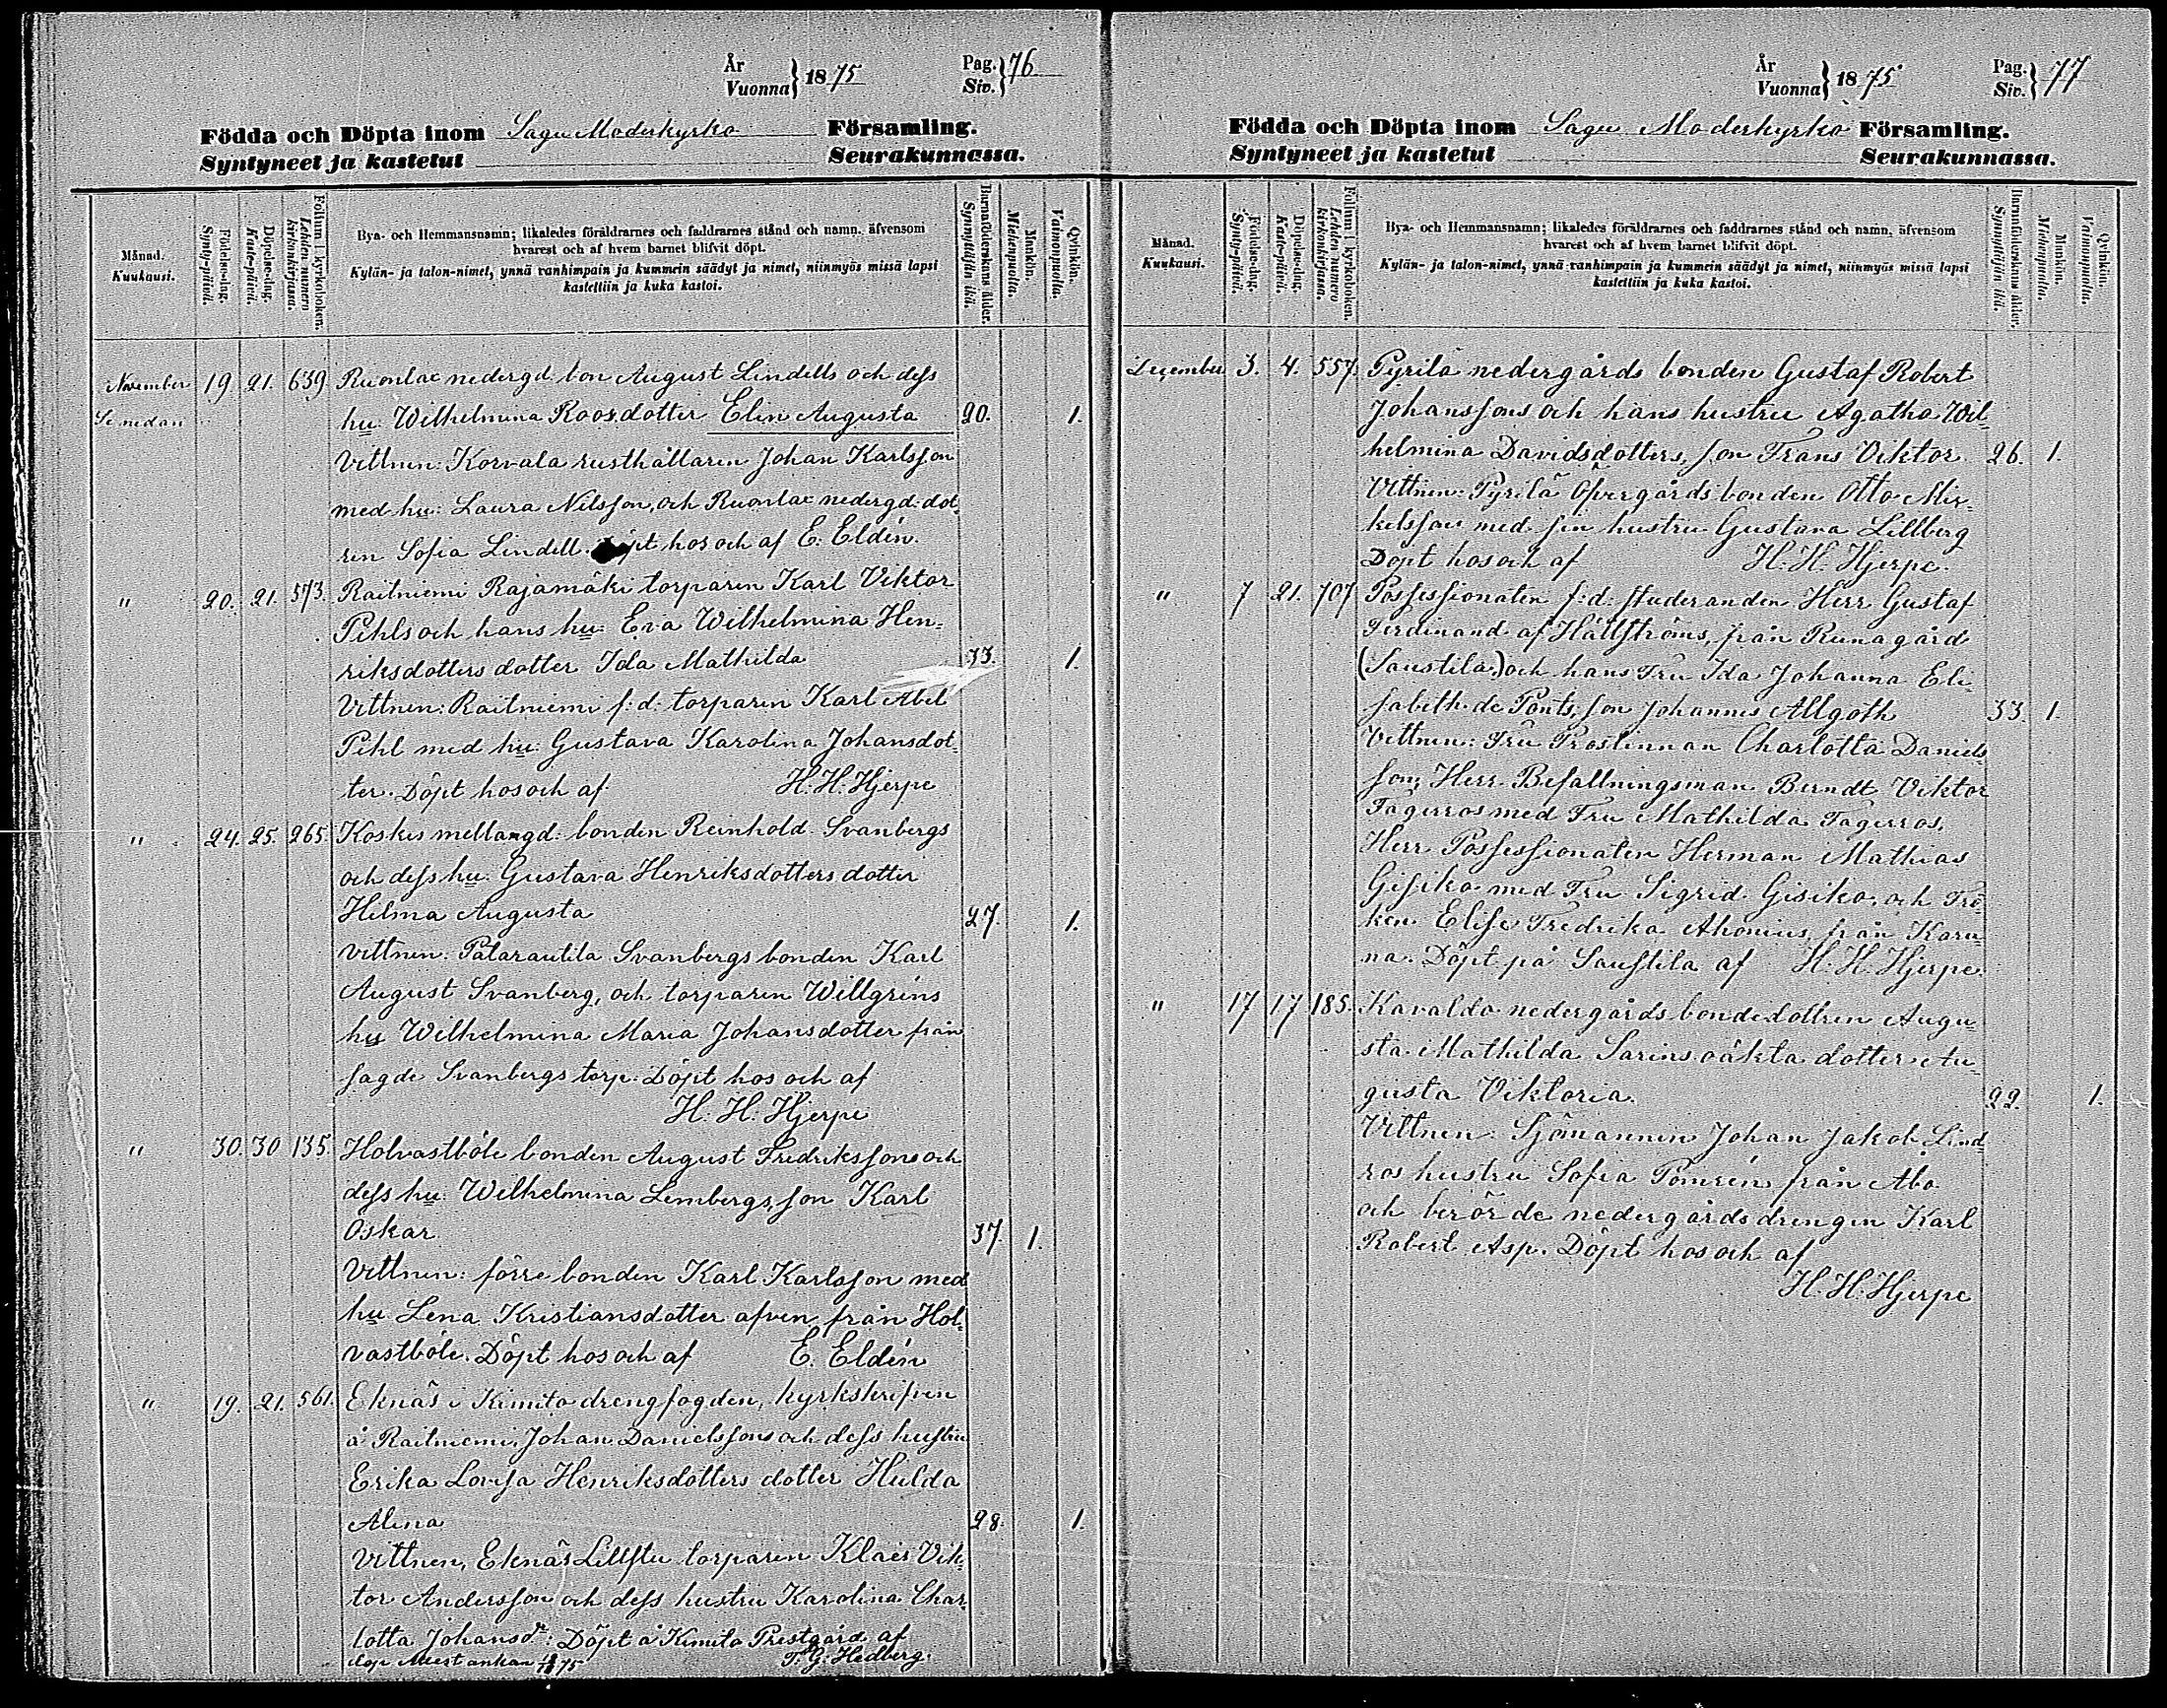 År
Vuonna } 1875
Pag.
Siv. } 76
Födda och Döpta inom Sagu Moderkyrko Församling.
Syntyneet ja kastetut Seurakunnassa.
Månad.
Kuukausi.
Födelse-dag.
Synty-päivä.
Döpelse-dag.
Kaste-päivä.
Folium i kyrkoboken.
Lehden numero kirkonkirjassa.
Bya- och Hemmansnamn; likaledes föräldrarnes och faddrarnes stånd och namn, äfvensom
hvarest och af hvem barnet blifvit döpt.
Kylän- ja talon-nimet, ynnä vanhimpain ja kummein säädyt ja nimet, niinmyös missä lapsi
kastettiin ja kuka kastoi.
Barnaföderskans ålder.
Synnyttäjän ikä.
Mankön.
Miehenpuolia.
Qvinkön.
Vaimonpuolia.
November 19 21. 639 Ruonlax nedergd. bon August Lindells och dess
Se nedan hu: Wilhelmina Roosdotter Elin Augusta 20. 1.
Vittnen: Korvala rusthållaren Johan Karlsson
med hu: Laura Nilsson, och Ruonlax nedergd: dot-
ren Sofia Lindell. hos och af E. Eldén.
" 20. 21. 573. Raitniemi Rajamäki torparen Karl Viktor
Pihls och hans hu: Eva Wilhelmina Hen-
riksdotters dotter Ida Mathilda 33. 1.
Vittnen: Raitniemi f:d: torparen Karl Abel
Pihl med hu: Gustava Karolina Johansdot-
ter. Döpt hos och af H. H. Hjerpe
" 24. 25. 265. Koskis mellangd: bonden Reinhold Svanbergs
och dess hu: Gustava Henriksdotters dotter
Hilma Augusta 27. 1.
Vittnen: Palarautila Svanbergs bonden Karl
August Svanberg, och torparen Willgrens
hu Wilhelmina Maria Johansdotter från
sagde Svanbergs torp. Döpt hos och af
H. H. Hjerpe
" 30. 30 135. Holvastböle bonden August Fredrikssons och
dess hu: Wilhelmina Lembergs, son Karl
Oskar 37. 1.
Vittnen: förre bonden Karl Karlsson med
hu Lena Kristiansdotter afven från Hol-
vastböle. Döpt hos och af E. Eldén
" 19. 21. 561. Eknäs i Kimito drengfogden, kyrkskrifven
å Raitniemi, Johan Danielssons och dess hustru
Erika Lovisa Henriksdotters dotter Hulda
Alina 28. 1.
Vittnen, Eknäs torparen Klaes Vik-
tor Andersson och dess hustru Karolina Char-
lotta Johansdr: Döpt å Kimito Prestgård af
75 T. G. Hedberg.
År
Vuonna } 1875
Pag.
Siv. } 77
Födda och Döpta inom Sagu Moderkyrko Församling.
Syntyneet ja kastetut Seurakunnassa.
Månad.
Kuukausi.
Födelse-dag.
Synty-päivä.
Döpelse-dag.
Kaste-päivä.
Folium i kyrkoboken.
Lehden numero kirkonkirjassa.
Bya- och Hemmansnamn; likaledes föräldrarnes och faddrarnes stånd och namn, äfvensom
hvarest och af hvem barnet blifvit döpt.
Kylän- ja talon-nimet, ynnä vanhimpain ja kummein säädyt ja nimet, niinmyös missä lapsi
kastettiin ja kuka kastoi.
Barnaföderskans ålder.
Synnyttäjän ikä.
Mankön.
Miehenpuolia.
Qvinkön.
Vaimonpuolia.
December 3. 4. 557 Pyrilä nedergårds bonden Gustaf Robert
Johanssons och hans hustru Agatha Wil-
helmina Davidsdotters, son Frans Viktor 26. 1.
Vittnen: Pyrilä Öfvergårds bonden Otto Mic-
kelsson med sin hustru Gustava Lillberg
Döpt hos och af H. H. Hjerpe.
" 7 21. 707 Possessionaten f:d: studeranden Herr Gustaf
Ferdinand af Hällströms, från Runagård
(Saustila) och hans Fru Ida Johanna Eli-
sabeth de Ponts, son Johannes Allgoth 33. 1.
Vittnen: Fru Prostinnan Charlotta Daniels-
son, Herr Befallningsman Berndt Viktor
Fagerros med Fru Mathilda Fagerros,
Herr Possessionaten Herman Mathias
Gisiko med Fru Sigrid Gisiko, och Frö-
ken Elise Fredrika Ahonius, från Karu-
na. Döpt på Saustila af H. H. Hjerpe.
" 17 17 185. Kavaldo nedergårds bondedottren Augu-
sta Mathilda Sarins oäkta dotter Au-
gusta Viktoria. 22. 1.
Vittnen: Sjömannen Johan Jakob Lind-
ros hustru Sofia Tomrén från Åbo
och berörde nedergårds drengen Karl
Robert Asp. Döpt hos och af
H. H. Hjerpe